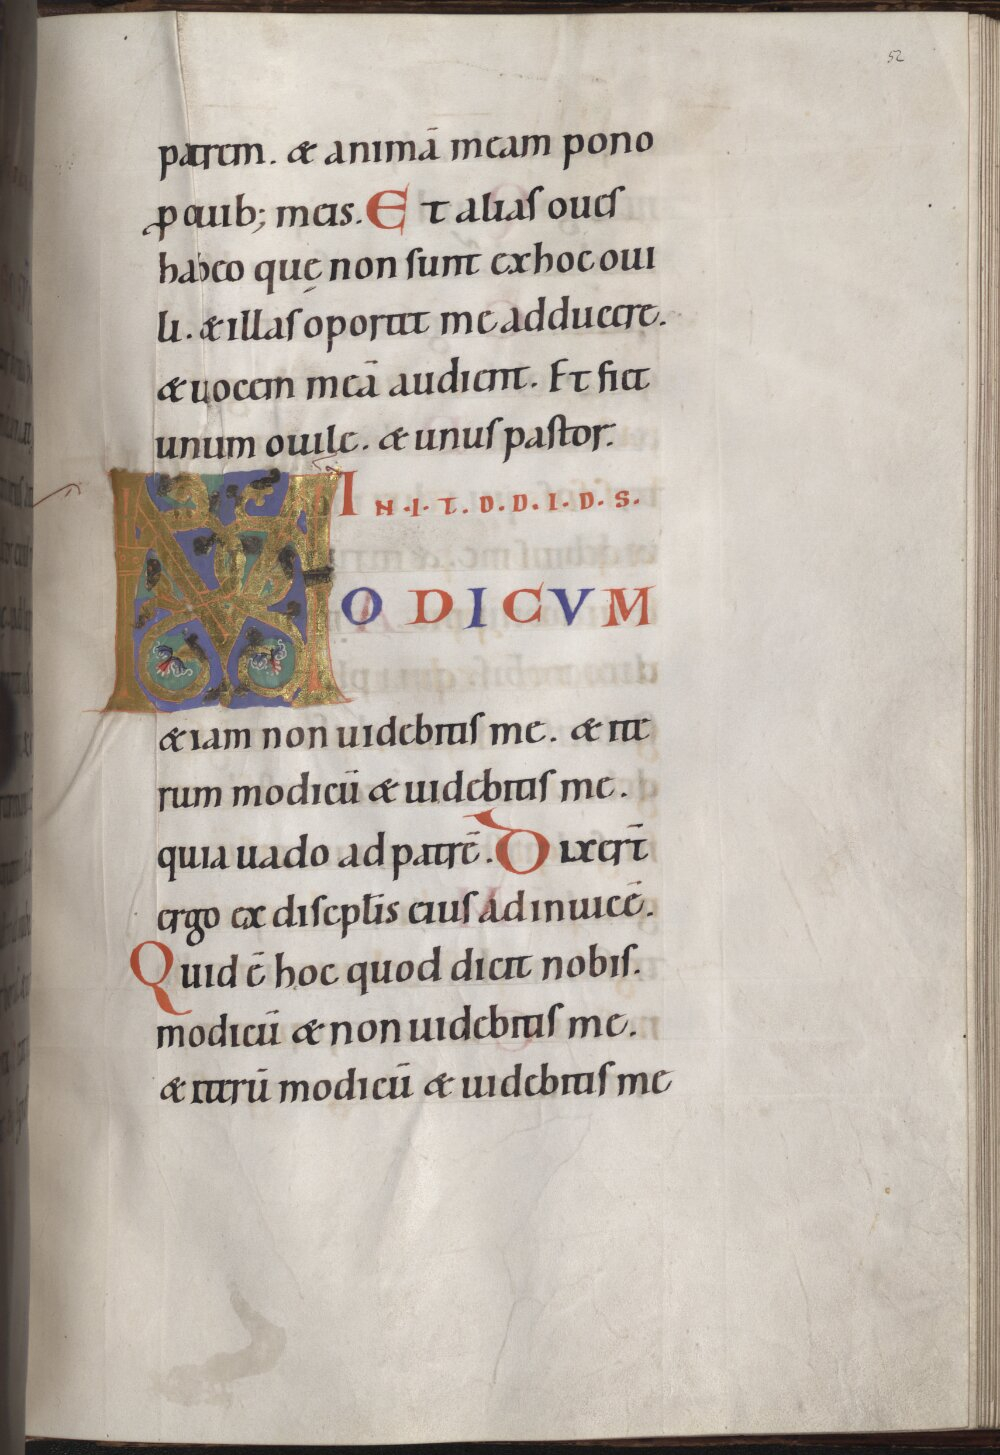 52
patrem. & animā meam pono
ꝓ ouib; meis. Et alias oues
habeo quę non sunt ex hoc oui
li. & illas oportet me adducere.
& uocem meā audient. Et fiet
unum ouile. & unus pastor.
IN·I·T·D·D·I·D·S.
MODICVM
& iam non uidebitis me. & ite
rum modicū & uidebitis me.
quia uado ad patrē. Dixerт̄
ergo ex discpl̄is eius ad inuicē.
Quid ē hoc quod dicit nobis.
modicū & non uidebitis me.
& iterū modicū & uidebitis me